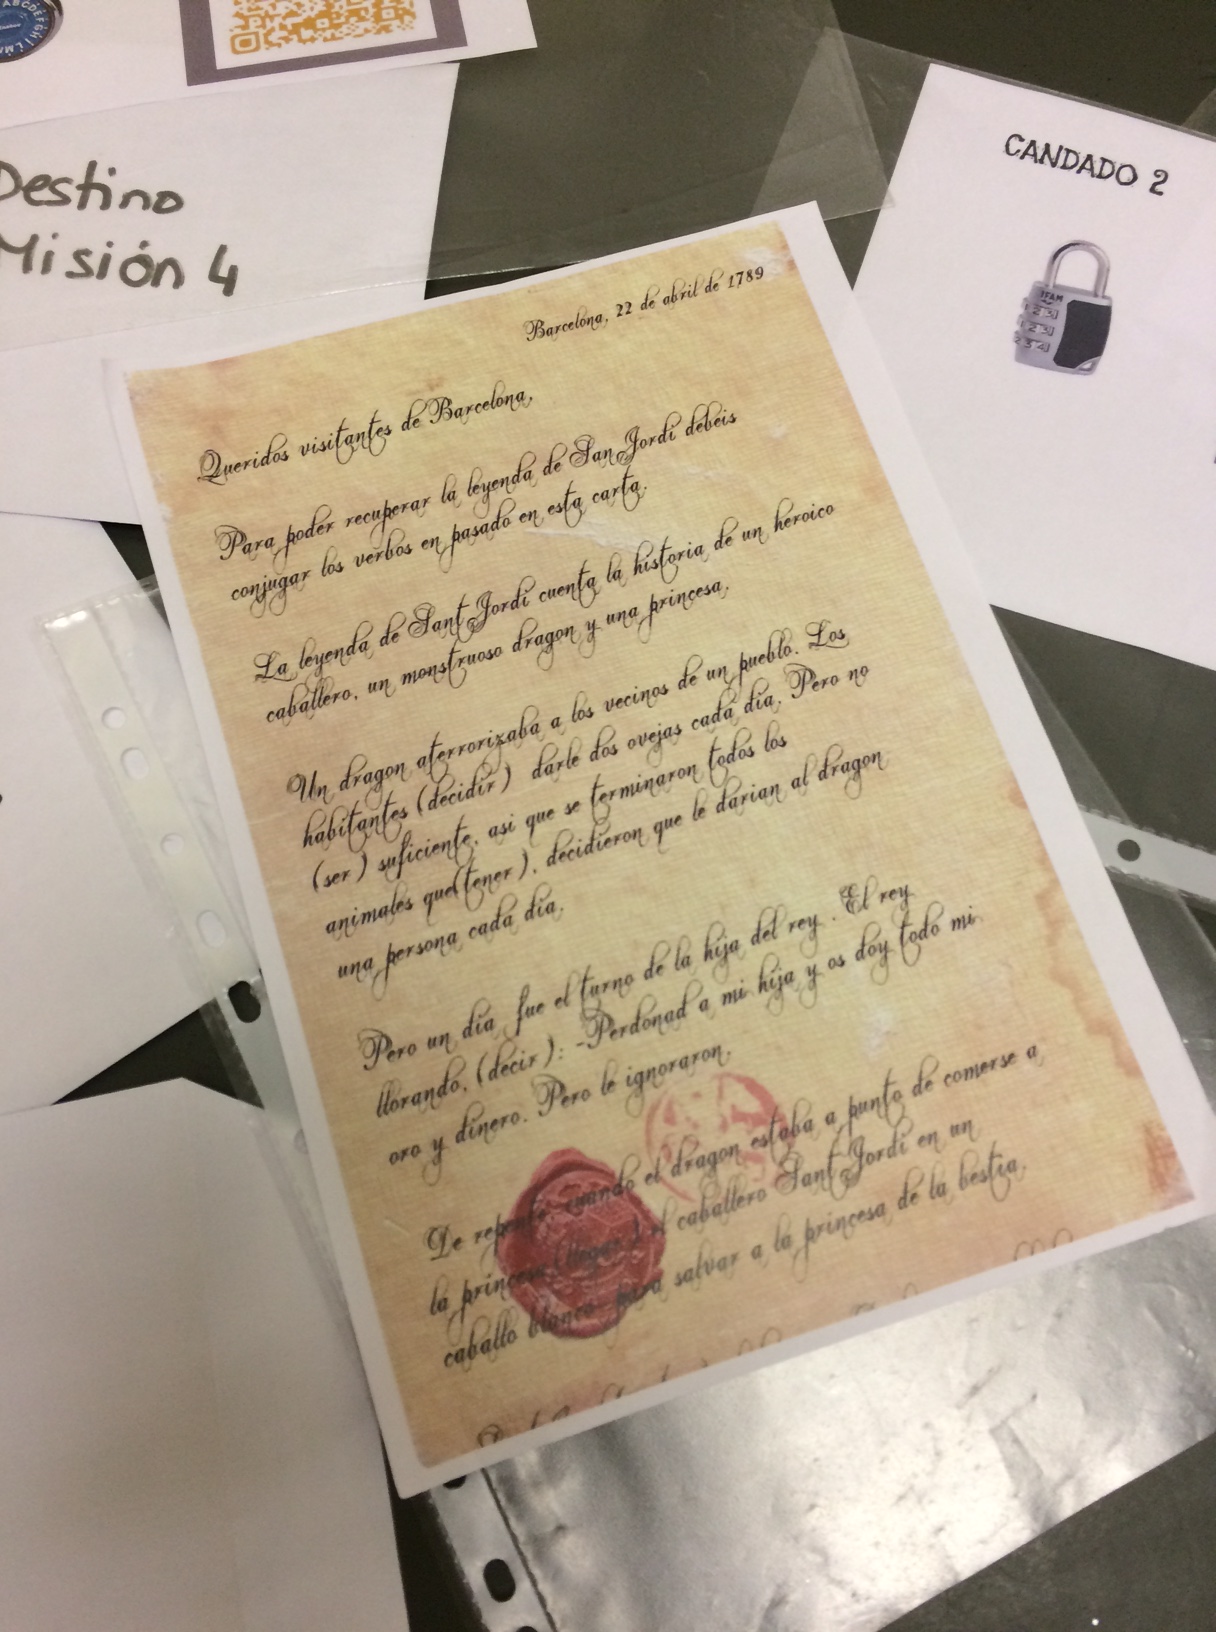 Destino
Misión 4
CANDADO 2
Barcelona, 22 de abril de 1789
Queridos visitantes de Barcelona,
Para poder recuperar la leyenda de San Jordi debéis
conjugar los verbos en pasado en esta carta.
La leyenda de Sant Jordi cuenta la historia de un heroico
caballero, un monstruoso dragon y una princesa.
Un dragon aterrorizaba a los vecinos de un pueblo. Los
habitantes (decidir) darle dos ovejas cada día. Pero no
(ser) suficiente, asi que se terminaron todos los
animales que(tener), decidieron que le darian al dragon
una persona cada día.
Pero un día fue el turno de la hija del rey . El rey
llorando, (decir): -Perdonad a mi hija y os doy todo mi
oro y dinero. Pero le ignoraron.
De repente, cuando el dragon estaba a punto de comerse a
la princesa (llegar) el caballero Sant Jordi en un
caballo blanco para salvar a la princesa de la bestia.